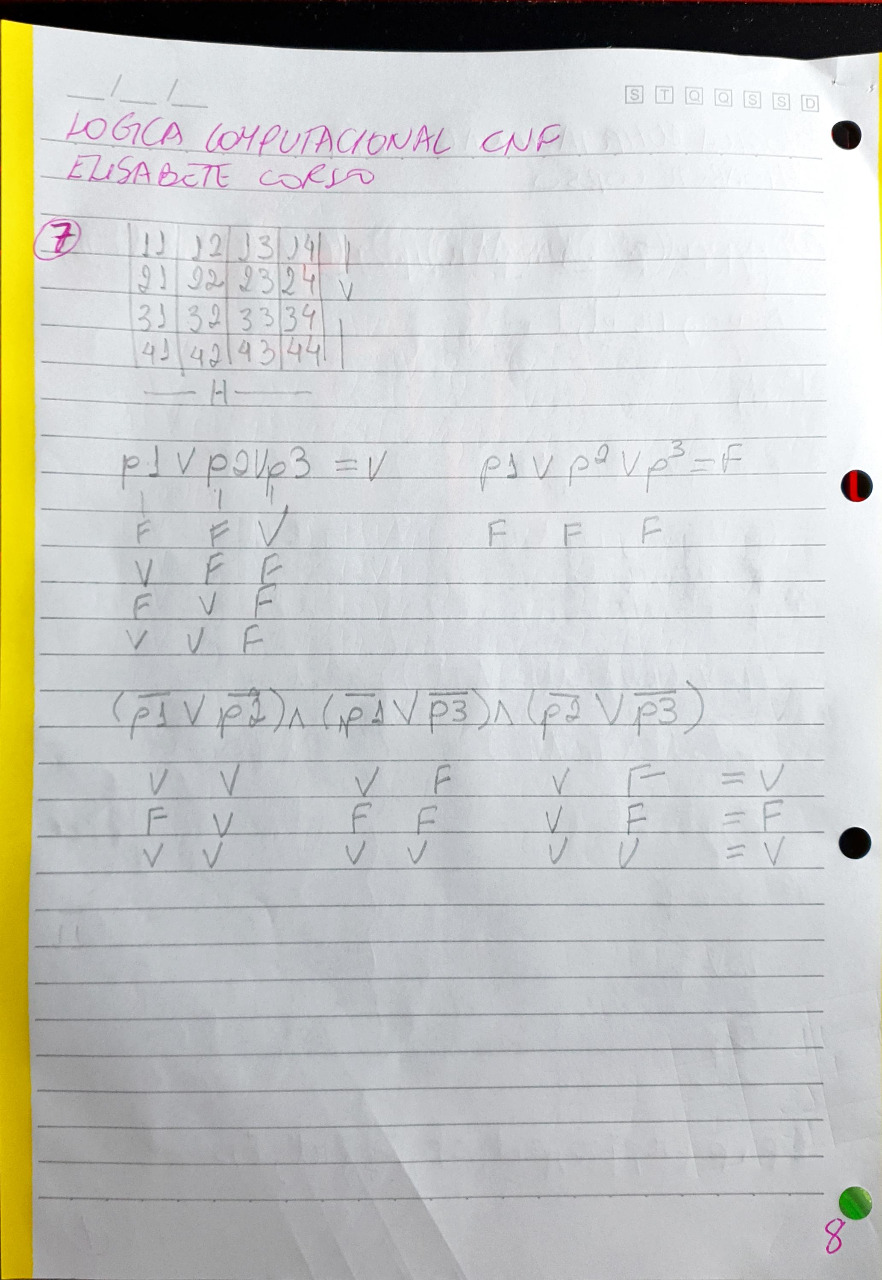 __/__/__
S T Q Q S S D
LOGICA COMPUTACIONAL CNF
ELISABETE CORSO
7
11 12 13 14
21 22 23 24 V
31 32 33 34
41 42 43 44
H
p1 V p2 V p3 = V p1 V p2 V p3 = F
F F V F F F
V F F
F V F
V V F
(p̅1̅ V p̅2̅) ∧ (p̅1̅ V p̅3̅) ∧ (p̅2̅ V p̅3̅)
V V V F V F = V
F V F F V F = F
V V V V V V = V
8